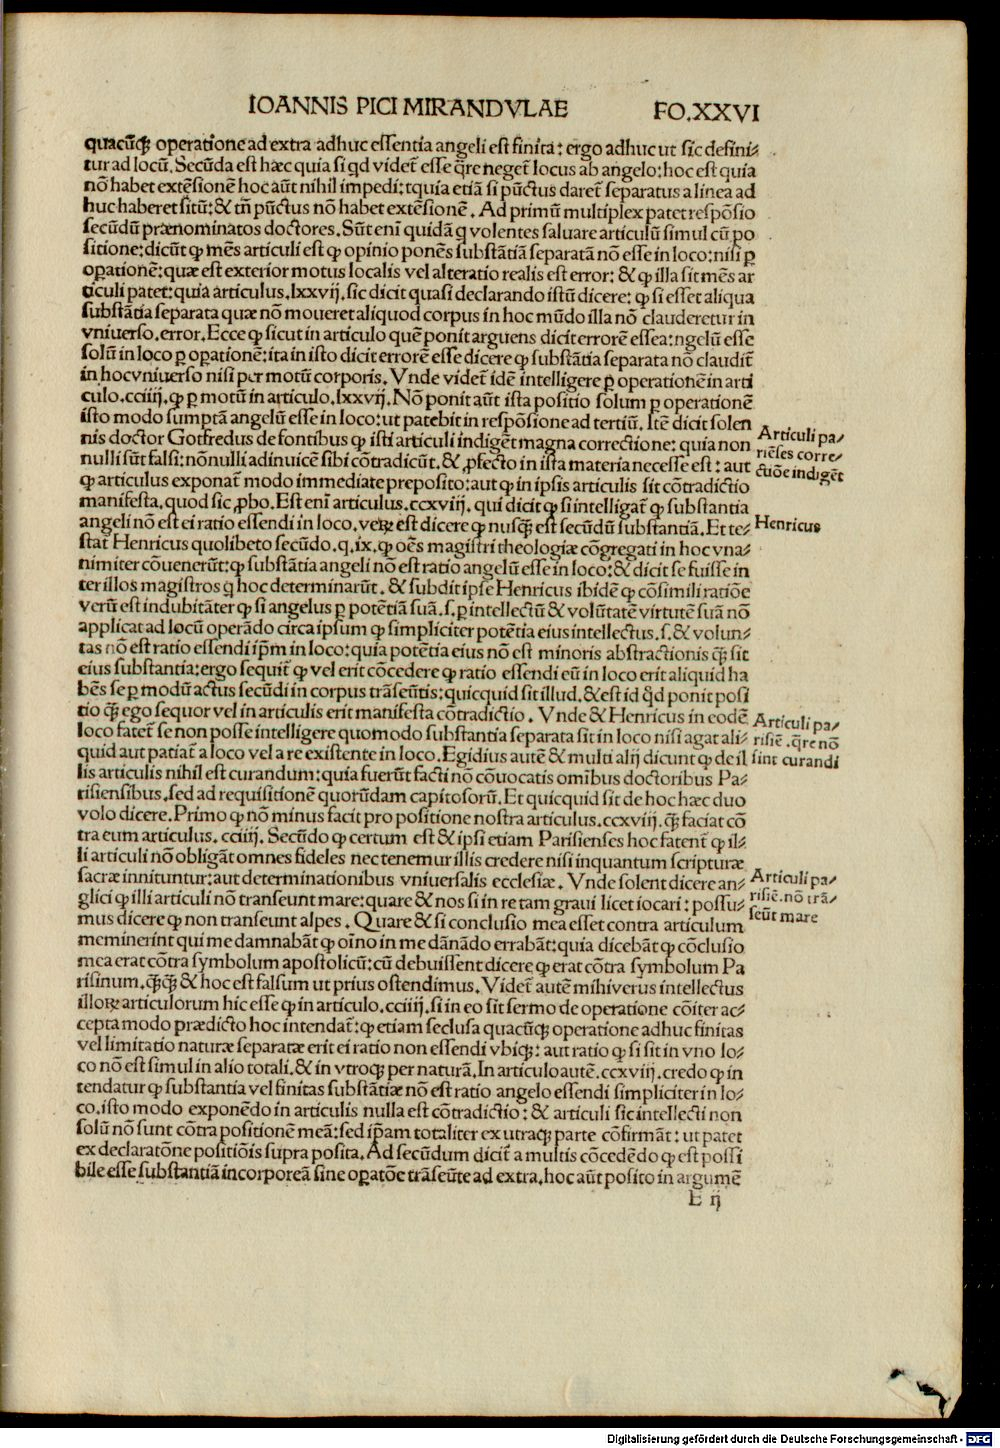 IOANNIS PICI MIRANDVLAE FO.XXVI
quacūqꝫ operatione ad extra adhuc essentia angeli est finita: ergo adhuc ut sic defini⸗
tur ad locū. Secūda est hæc quia si qd videt̄ esse q̄re neget̄ locus ab angelo: hoc est quia
nō habet extēsionē hoc aūt nihil impedi: tquia etiā si pūctus daret̄ separatus a linea ad
huc haberet sitū: & tn̄ pūctus nō habet extēsionē. Ad primū multiplex patet respōsio
secūdū prænominatos doctores. Sūt eni quidā q volentes saluare articulū simul cū po
sitione: dicūt ꝙ mēs articuli est ꝙ opinio ponēs substātiā separatā nō esse in loco: nisi ꝑ
oꝑationē: quæ est exterior motus localis vel alteratio realis est error: & ꝙ illa sit mēs ar
ticuli patet: quia articulus. lxxvij. sic dicit quasi declarando istū dicere: ꝙ si esset aliqua
substātia separata quæ nō moueret aliquod corpus in hoc mūdo illa nō clauderetur in
vniuerso, error. Ecce ꝙ sicut in articulo quē ponit arguens dicit errorē essea: ngelū esse
solū in loco ꝑ oꝑationē: ita in isto dicit errorē esse dicere ꝙ substātia separata nō claudit̄
in hoc vniuerso nisi per motū corporis. Vnde videt̄ idē intelligere ꝑ operationē in arti
culo. cciiij. ꝙ ꝑ motū in articulo. lxxvij. Nō ponit aūt ista positio solum ꝑ operationē
isto modo sumptā angelū esse in loco: ut patebit in respōsione ad tertiū. Itē dicit solen
nis doctor Gotfredus de fontibus ꝙ isti articuli indigēt magna correctione: quia non
nulli sūt falsi: nōnulli adinuicē sibi cōtradicūt. & ꝓfecto in ista materia necesse est: aut
ꝙ articulus exponat̄ modo immediate preposito: aut ꝙ in ipsis articulis sit cōtradictio
manifesta, quod sic ꝓbo. Est enī articulus. ccxviij. qui dicit ꝙ si intelligat̄ ꝙ substantia
angeli nō est ei ratio essendi in loco, veꝝ est dicere ꝙ nusqꝫ est secūdū substantiā. Et te⸗
stat̄ Henricus quolibeto secūdo. q. ix. ꝙ oēs magistri theologiæ cōgregati in hoc vna⸗
nimiter cōuenerūt: ꝙ substātia angeli nō est ratio angelū esse in loco: & dicit se fuisse in
ter illos magistros q hoc determinarūt. & subdit ipse Henricus ibidē ꝙ cōsimili ratiōe
verū est indubitāter ꝙ si angelus ꝑ potētiā suā. s. ꝑ intellectū & volūtatē virtutē suā nō
applicat ad locū operādo circa ipsum ꝙ simpliciter potētia eius intellectus. s. & volun⸗
tas nō est ratio essendi ip̄m in loco: quia potētia eius nō est minoris abstractionis qꝫ sit
eius substantia: ergo sequit̄ ꝙ vel erit cōcedere ꝙ ratio essendi eū in loco erit aliquid ha
bēs se ꝑ modū actus secūdi in corpus trāseūtis: quicquid sit illud. & est id qd̄ ponit posi
tio qꝫ ego sequor vel in articulis erit manifesta cōtradictio. Vnde & Henricus in eodē
loco fatet̄ se non posse intelligere quomodo substantia separata sit in loco nisi agat ali⸗
quid aut patiat̄ a loco vel a re existente in loco. Egidius autē & multi alij dicunt ꝙ de il
lis articulis nihil est curandum: quia fuerūt facti nō cōuocatis omībus doctoribus Pa⸗
risiensibus, sed ad requisitionē quorūdam capitosorū. Et quicquid sit de hoc hæc duo
volo dicere. Primo ꝙ nō minus facit pro positione nostra articulus. ccxviij. qꝫ faciat cō
tra eum articulus. cciiij. Secūdo ꝙ certum est & ipsi etiam Parisienses hoc fatent̄ ꝙ il⸗
li articuli nō obligāt omnes fideles nec tenemur illis credere nisi inquantum scripturæ
sacræ innituntur: aut determinationibus vniuersalis ecclesiæ. Vnde solent dicere an⸗
glici ꝙ illi articuli nō transeunt mare: quare & nos si in re tam graui licet iocari: possu⸗
mus dicere ꝙ non transeunt alpes. Quare & si conclusio mea esset contra articulum
meminerint qui me damnabāt ꝙ oīno in me dānādo errabāt: quia dicebāt ꝙ cōclusio
mea erat cōtra symbolum apostolicū: cū debuissent dicere ꝙ erat cōtra symbolum Pa
risinum, qꝫqꝫ & hoc est falsum ut prius ostendimus. Videt̄ autē mihi verus intellectus
illoꝝ articulorum hic esse ꝙ in articulo. cciiij. si in eo sit sermo de operatione cōiter ac⸗
cepta modo prædicto hoc intendat̄: ꝙ etiam seclusa quacūqꝫ operatione adhuc finitas
vel limitatio naturæ separatæ erit ei ratio non essendi vbiqꝫ: aut ratio ꝙ si sit in vno lo⸗
co nō est simul in alio totali. & in vtroqꝫ per naturā. In articulo autē. ccxviij. credo ꝙ in
tendatur ꝙ substantia vel finitas substātiæ nō est ratio angelo essendi simpliciter in lo⸗
co. isto modo exponēdo in articulis nulla est cōtradictio: & articuli sic intellecti non
solū nō sunt cōtra positionem meā: sed ip̄am totaliter ex utraqꝫ parte cōfirmāt: ut patet
ex declaratōne positiōis supra posita. Ad secūdum dicit̄ a multis cōcedēdo ꝙ est possi
bile esse substantiā incorporeā sine oꝑatōe trāseūte ad extra, hoc aūt posito in argumē
E ij
Articuli pa⸗
riēses corre⸗
ctiōe indigēt
Henricus
Articuli pa⸗
risiē. q̄re nō
sint curandi
Articuli pa⸗
risiē. nō trā⸗
seūt mare
Digitalisierung gefördert durch die Deutsche Forschungsgemeinschaft - DFG